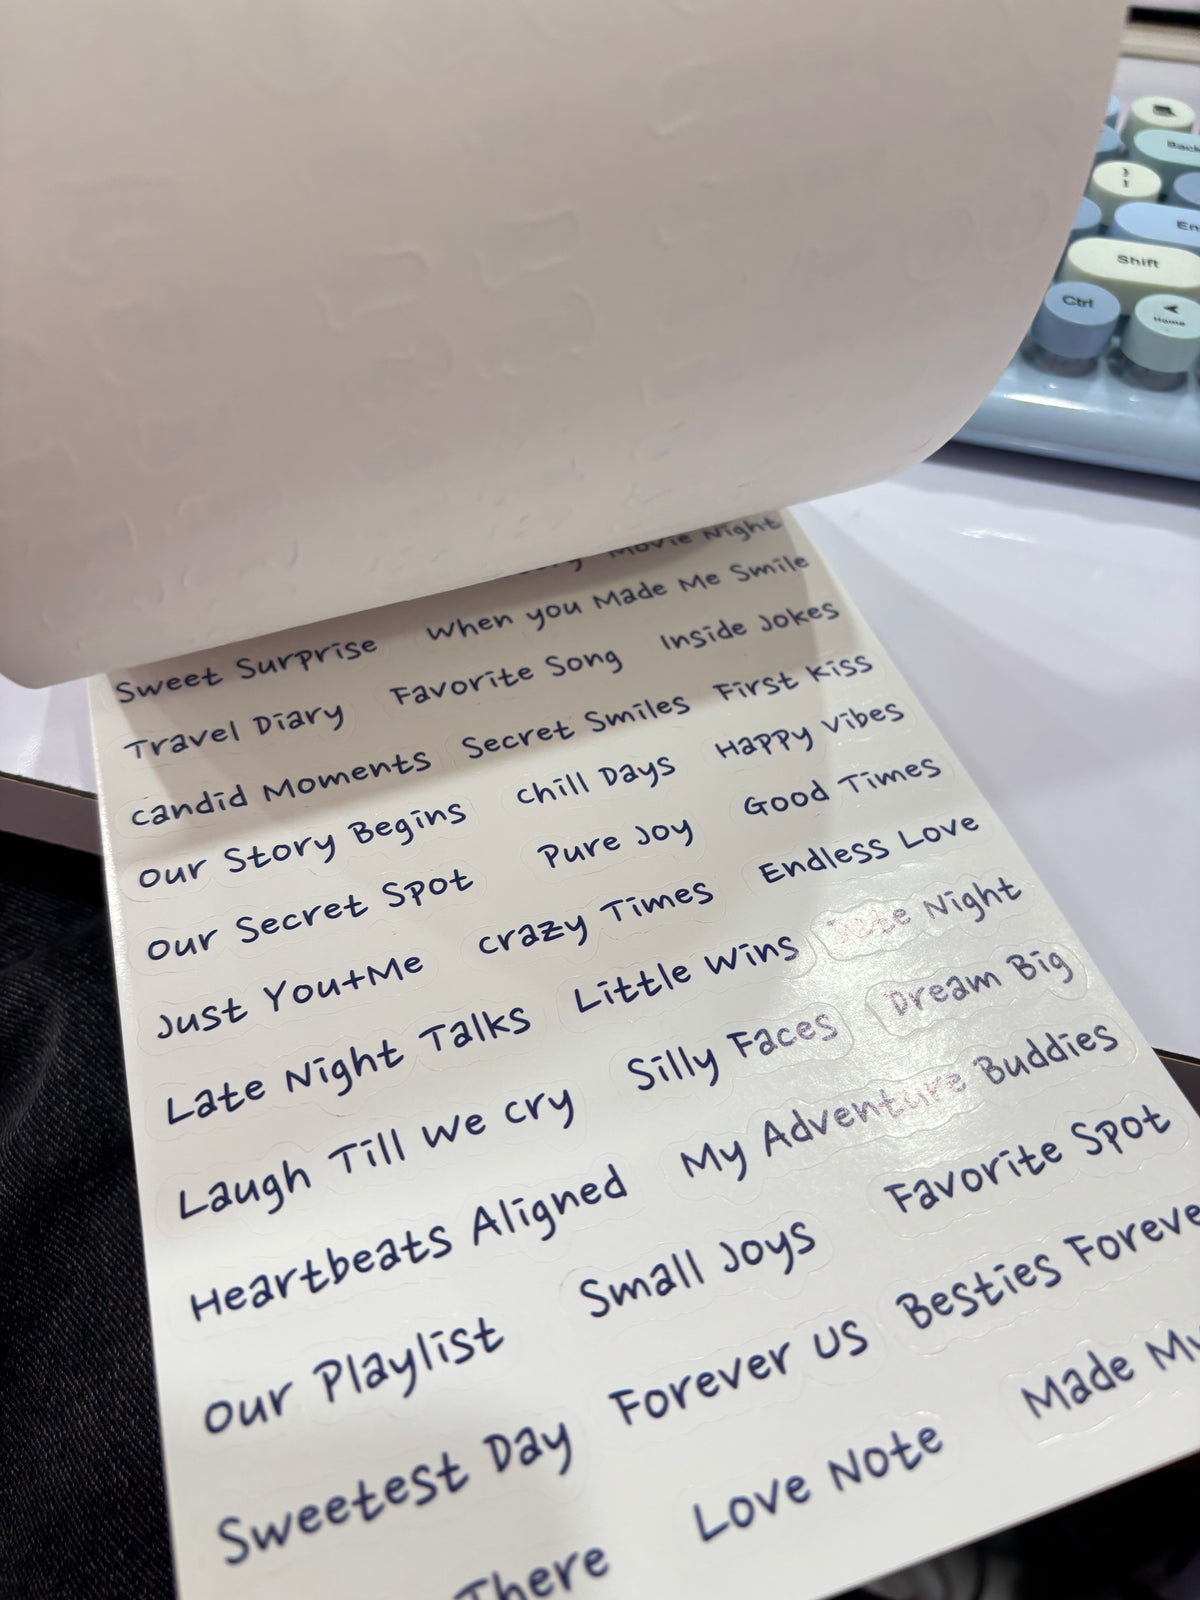 Movie Night
Sweet Surprise When you Made Me Smile
Travel Diary Favorite Song Inside Jokes
Candid Moments Secret Smiles First Kiss
Our Story Begins Chill Days Happy Vibes
Our Secret Spot Pure Joy Good Times
Just You+Me Crazy Times Endless Love
Late Night Talks Little Wins Date Night
Laugh Till We Cry Silly Faces Dream Big
Heartbeats Aligned My Adventure Buddies
Our Playlist Small Joys Favorite Spot
Sweetest Day Forever US Besties Foreve
There Love Note Made My
Shift
Ctrl
Home